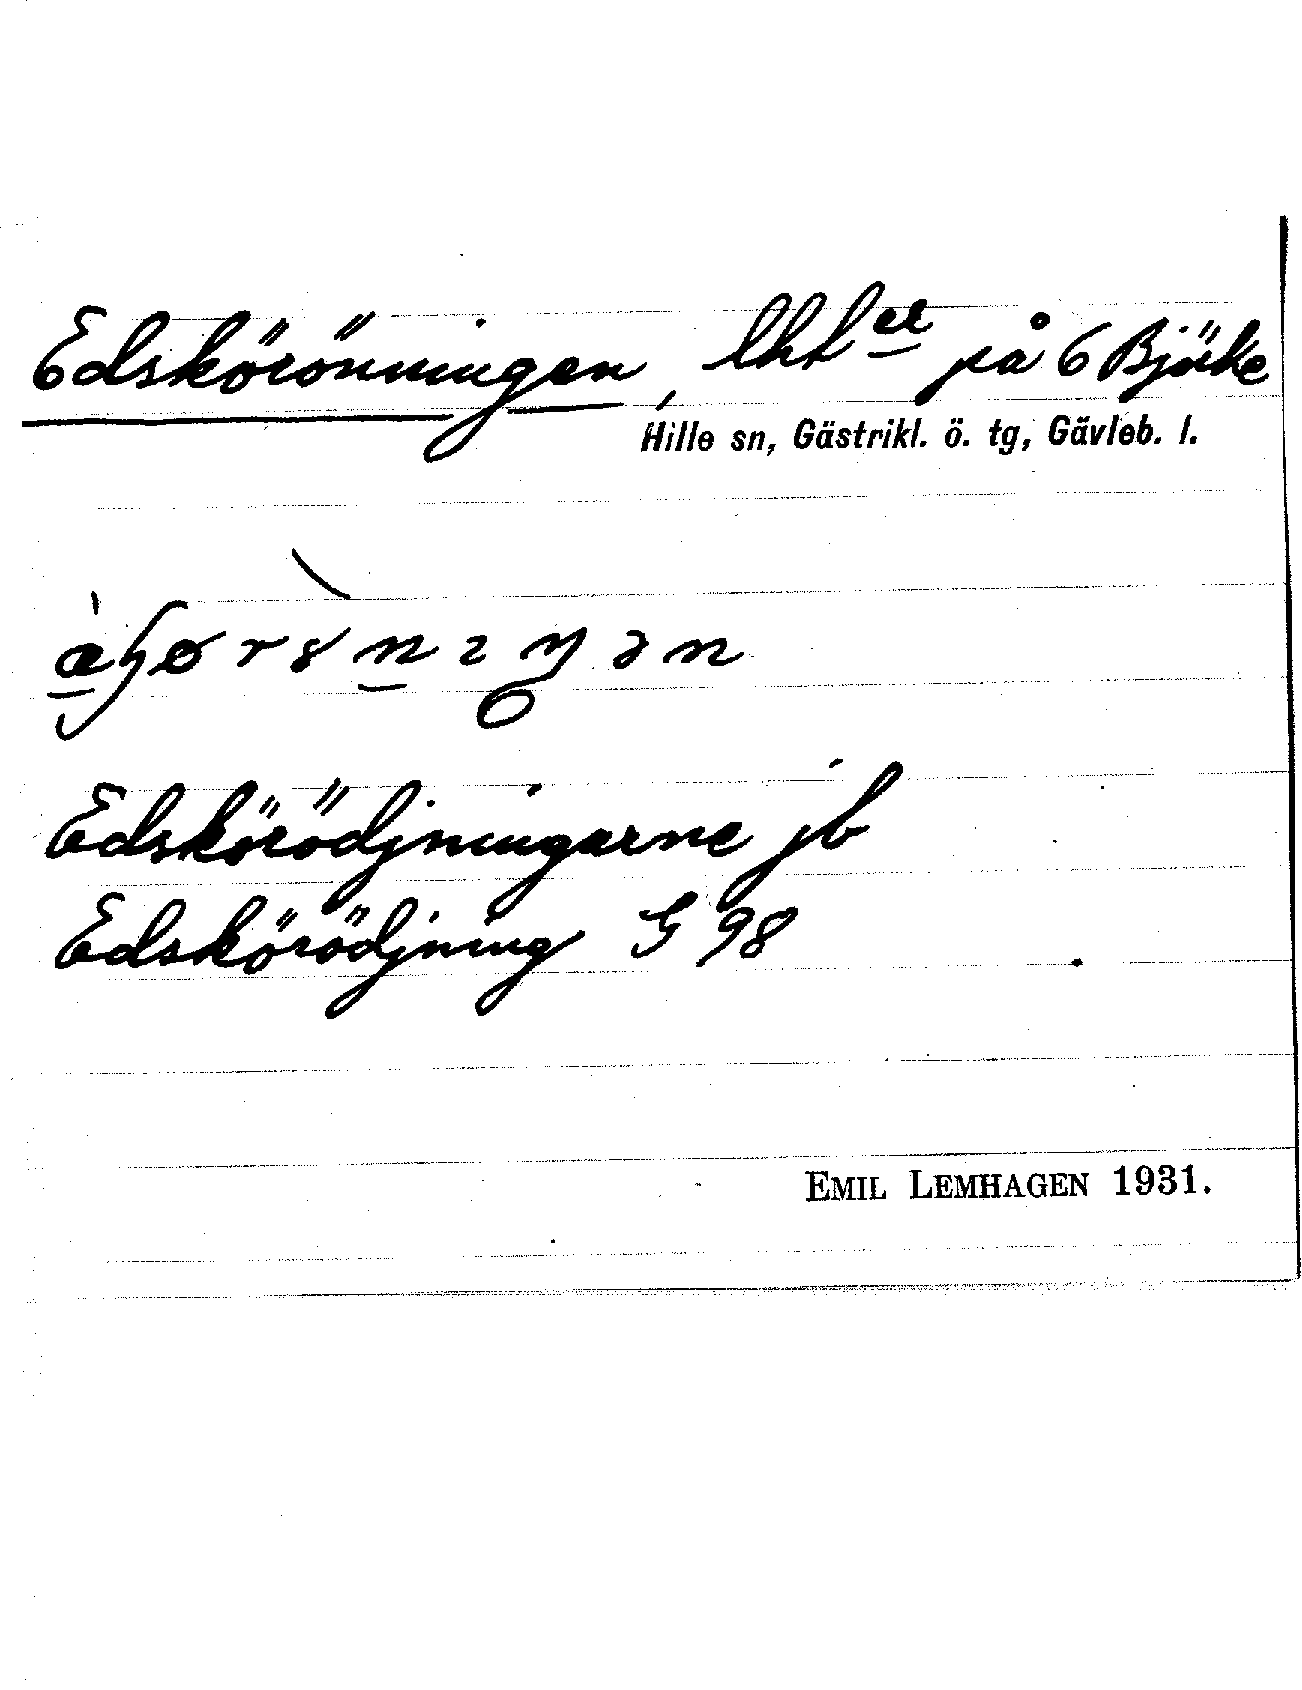 Edskörönningen, lht el på 6 Björke
Hille sn, Gästrikl. ö. tg, Gävleb. l.
Edskörödjningarne jb
Edskörödjning G 98
EMIL LEMHAGEN 1931.